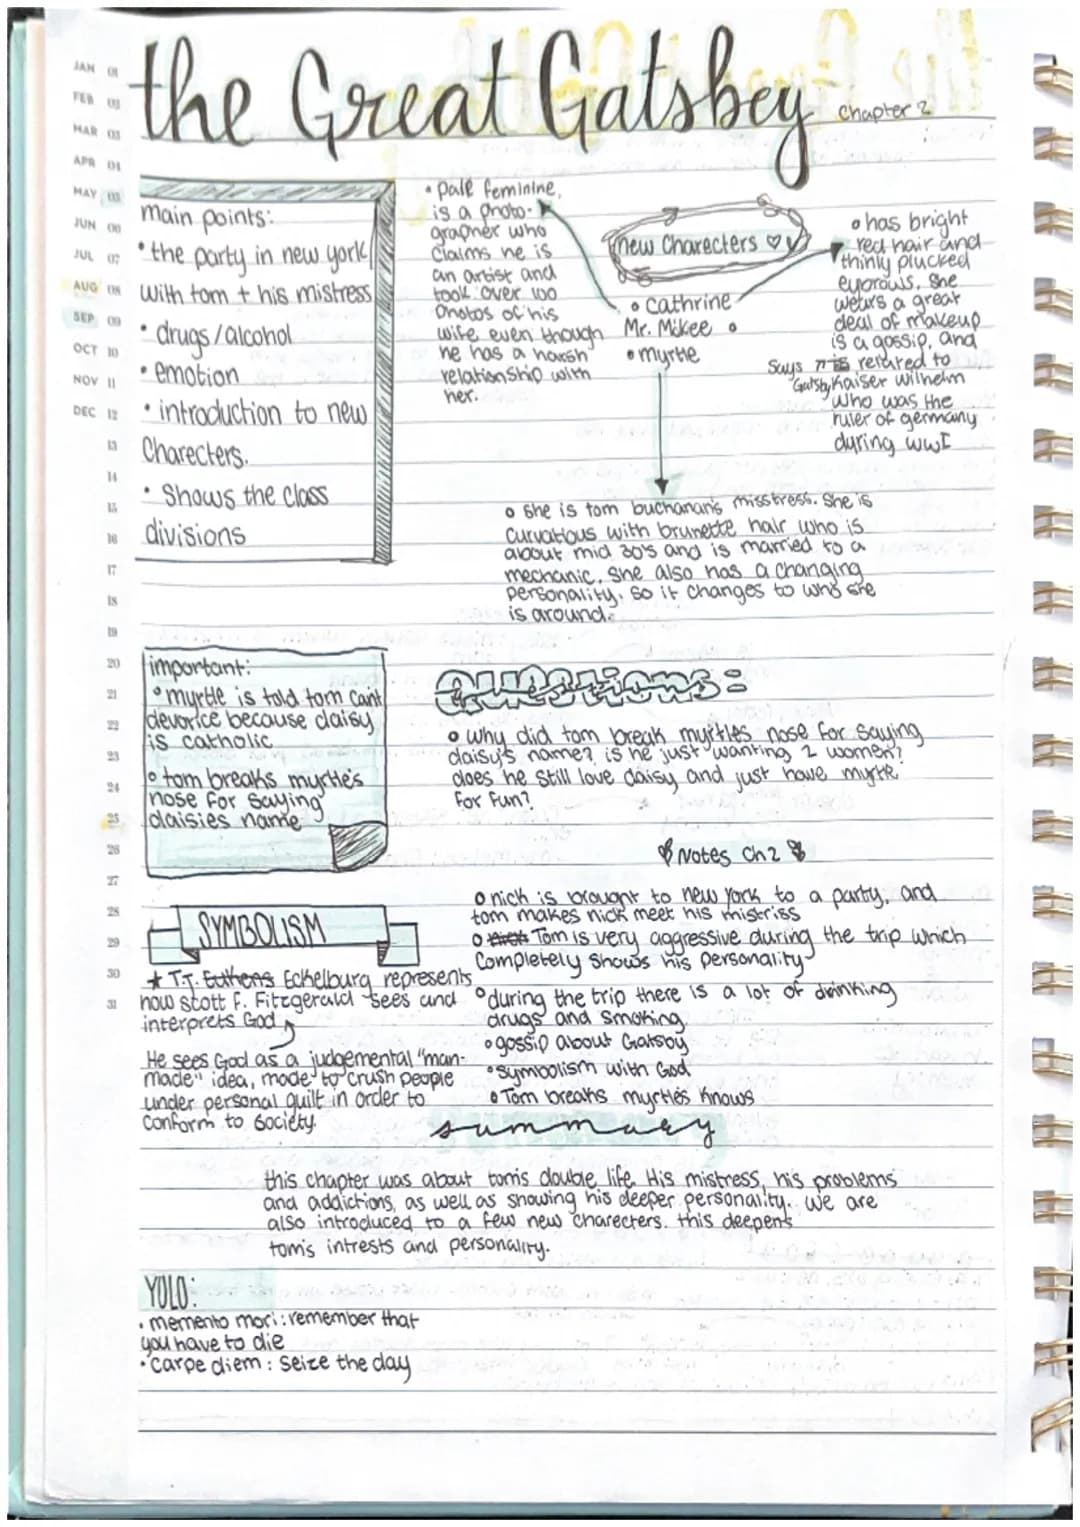 the Great Gatsbey Chapter 2
JAN 01
FEB 02
MAR 03
APR 04
MAY 05
JUN 06
JUL 07
AUG 08
SEP 09
OCT 10
NOV 11
DEC 12
13
14
15
16
17
18
19
20
21
22
23
24
25
26
27
28
29
30
31
main points:
• the party in new york
with tom + his mistress
• drugs/alcohol
• emotion
• introduction to new
Charecters.
• Shows the class
divisions
• pale feminine,
is a photo-
grapher who
claims he is
an artist and
took over 100
photos of his
wife even though
he has a harsh
relationship with
her.
new Charecters ♡
• Cathrine
Mr. Mckee •
• myrtle
• has bright
red hair and
thinly plucked
eyebrows, she
wears a great
deal of makeup
is a gossip, and
Says is related to
Gatsby Kaiser Wilhelm
who was the
ruler of germany
during WWI
• she is tom buchanan's misstress. She is
curvatious with brunette hair who is
about mid 30's and is married to a
mechanic. She also has a changing
personality. so it changes to who she
is around.
important:
• myrtle is told tom can't
devorice because daisy
is catholic
• tom breaks myrtle's
nose for saying
daisies name
Questions:
• why did tom break myrtles nose for saying
daisy's name? is he just wanting 2 women?
does he still love daisy and just have myrtle
for fun?
Notes Ch2
• nick is brought to new york to a party, and
tom makes nick meet his mistriss
• Tom is very aggressive during the trip which
completely shows his personality
• during the trip there is a lot of drinking
drugs and smoking.
• gossip about Gatsby
• symbolism with God
• Tom breaks myrtles knows
SYMBOLISM
★ T.J. Eckelburg represents
how scott F. Fitzgerald sees and
interprets God
He sees God as a judgemental "man-
made" idea, made to crush people
under personal guilt in order to
conform to society.
summary
this chapter was about tom's double life. His mistress, his problems
and addictions, as well as showing his deeper personality. we are
also introduced to a few new charecters. this deepens
tom's intrests and personality.
YOLO:
• memento mori: remember that
you have to die
• carpe diem: seize the day